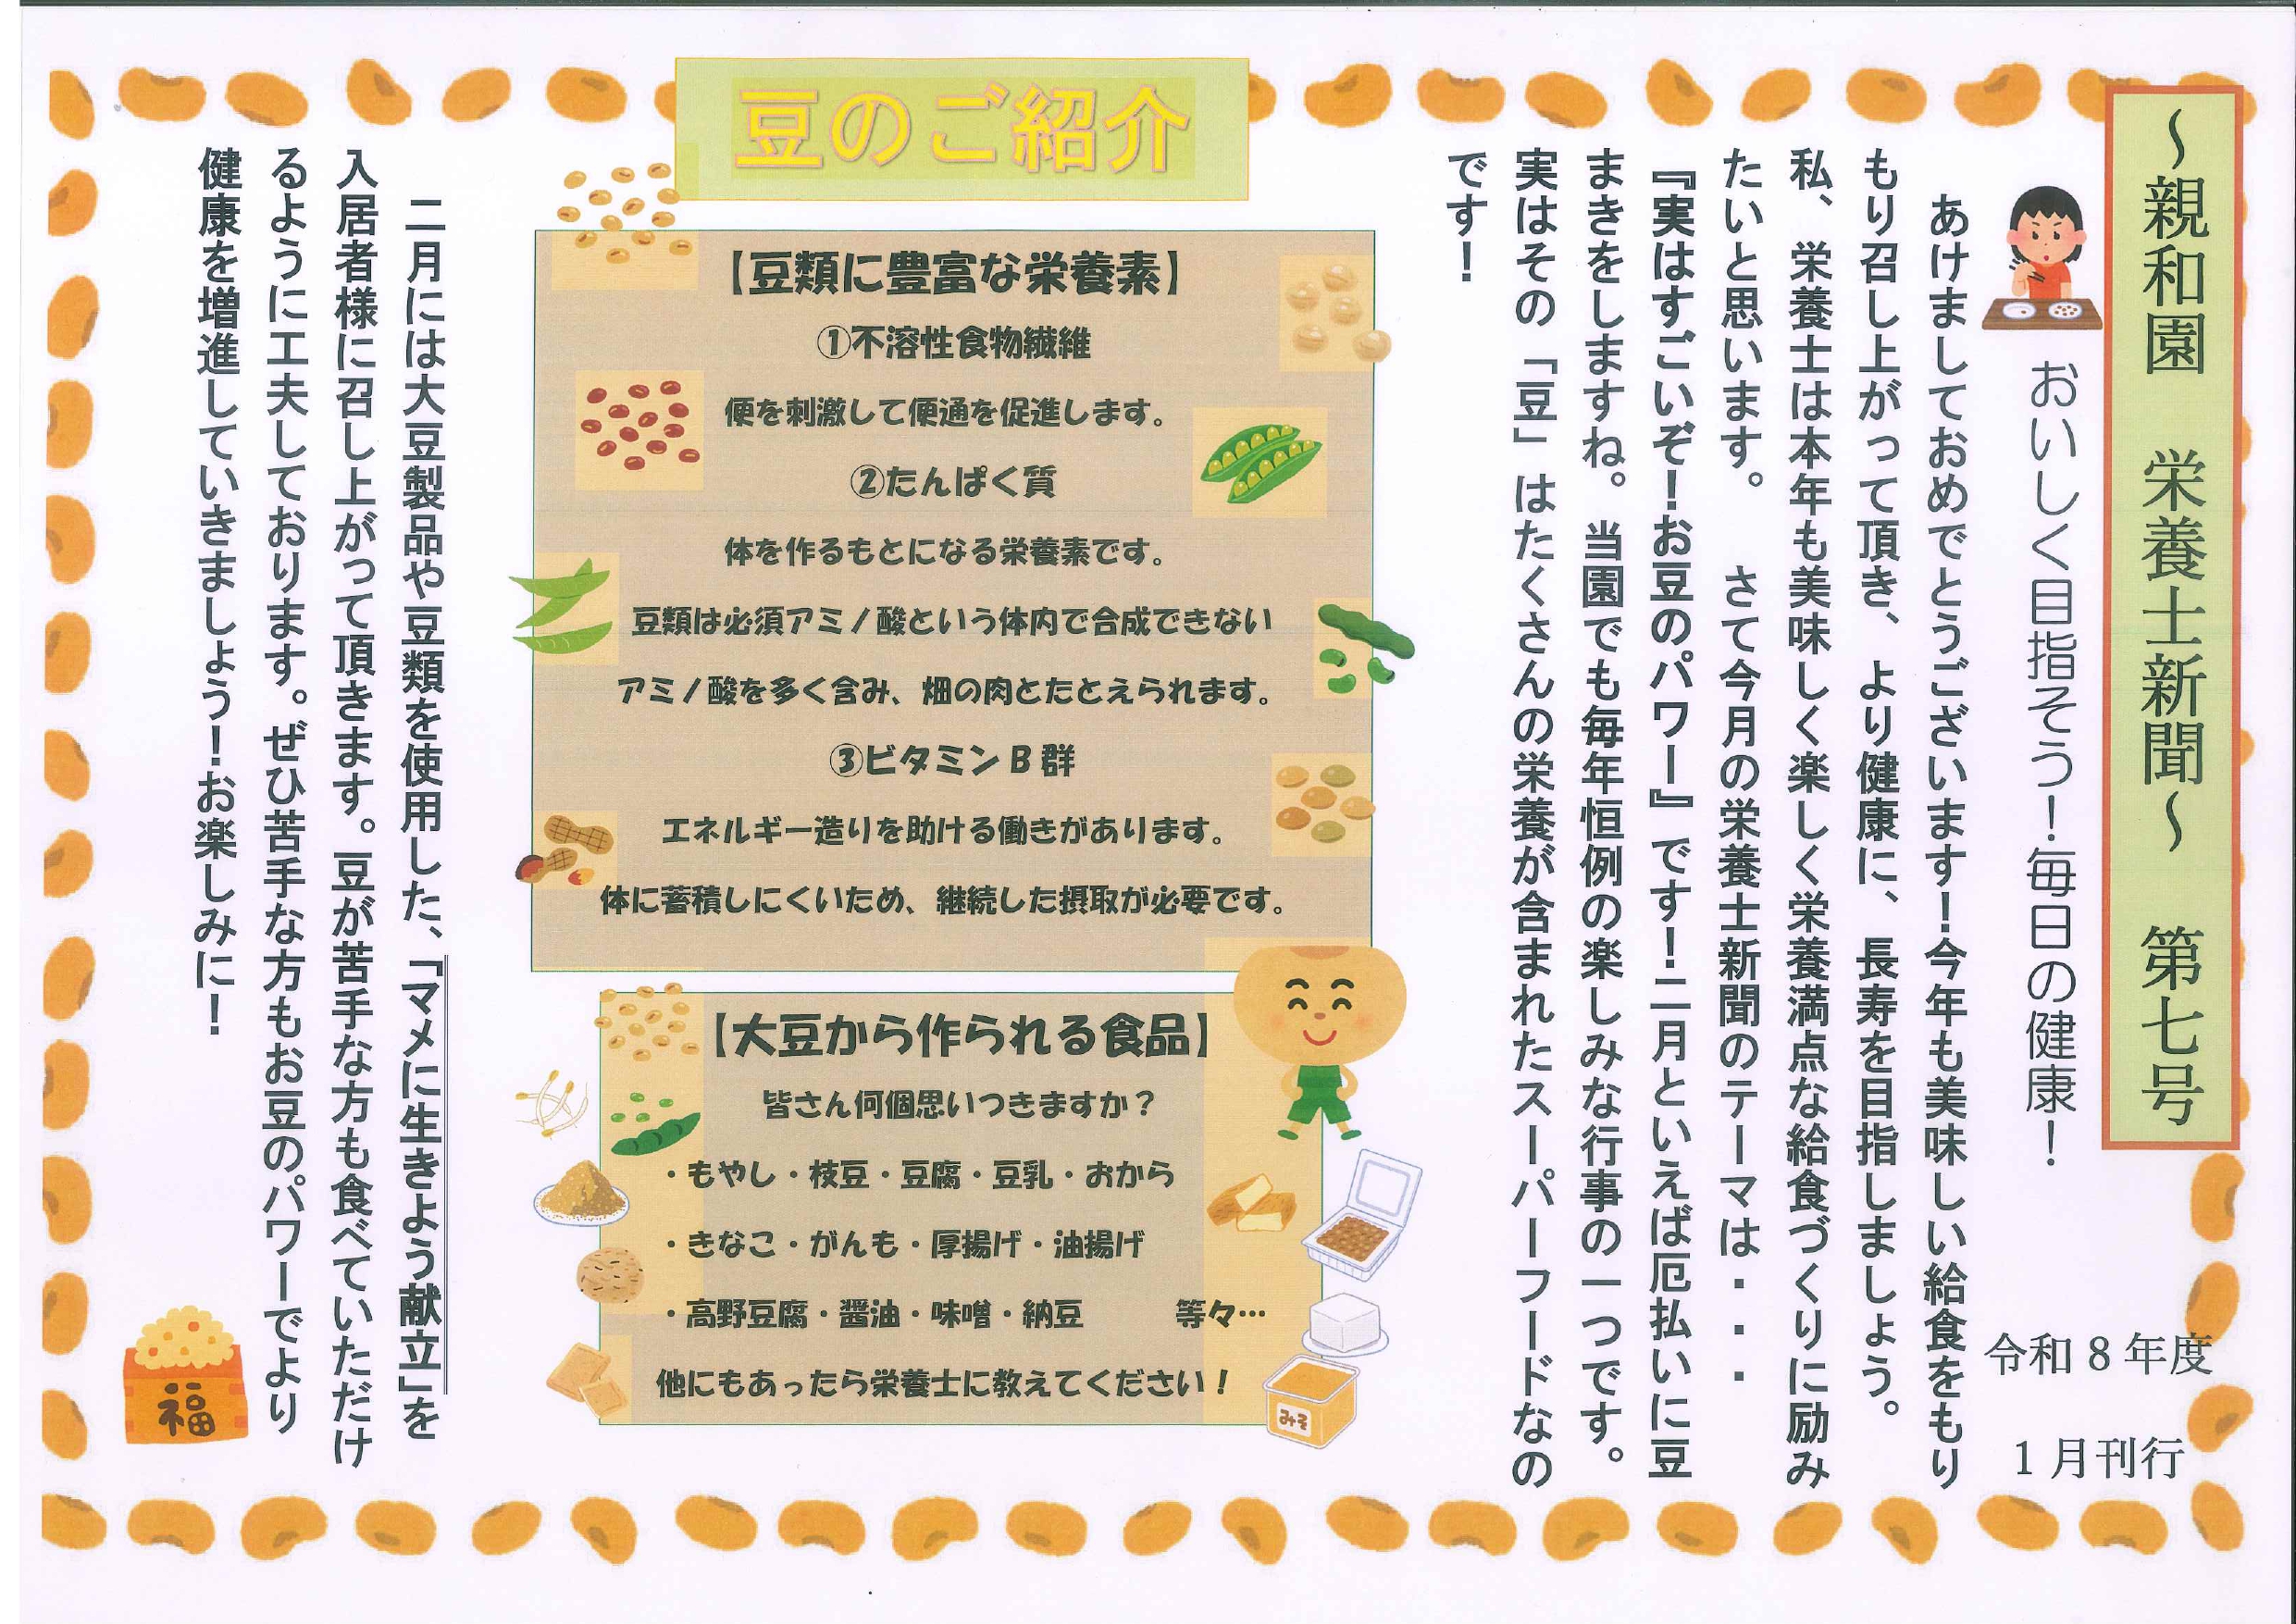 ～親和園　栄養士新聞～　第七号
おいしく目指そう！毎日の健康！
令和8年度
1月刊行
あけましておめでとうございます！今年も美味しい給食をもり
もり召し上がって頂き、より健康に、長寿を目指しましょう。
私、栄養士は本年も美味しく楽しく栄養満点な給食づくりに励み
たいと思います。　さて今月の栄養士新聞のテーマは・・・
『実はすごいぞ！お豆のパワー』です！二月といえば厄払いに豆
まきをしますね。当園でも毎年恒例の楽しみな行事の一つです。
実はその「豆」はたくさんの栄養が含まれたスーパーフードなの
です！
豆のご紹介
【豆類に豊富な栄養素】
①不溶性食物繊維
便を刺激して便通を促進します。
②たんぱく質
体を作るもとになる栄養素です。
豆類は必須アミノ酸という体内で合成できない
アミノ酸を多く含み、畑の肉とたとえられます。
③ビタミンB群
エネルギー造りを助ける働きがあります。
体に蓄積しにくいため、継続した摂取が必要です。
【大豆から作られる食品】
皆さん何個思いつきますか？
・もやし・枝豆・豆腐・豆乳・おから
・きなこ・がんも・厚揚げ・油揚げ
・高野豆腐・醤油・味噌・納豆　　　等々…
他にもあったら栄養士に教えてください！
みそ
二月には大豆製品や豆類を使用した、「マメに生きよう献立」を
入居者様に召し上がって頂きます。豆が苦手な方も食べていただけ
るように工夫しております。ぜひ苦手な方もお豆のパワーでより
健康を増進していきましょう！お楽しみに！
福